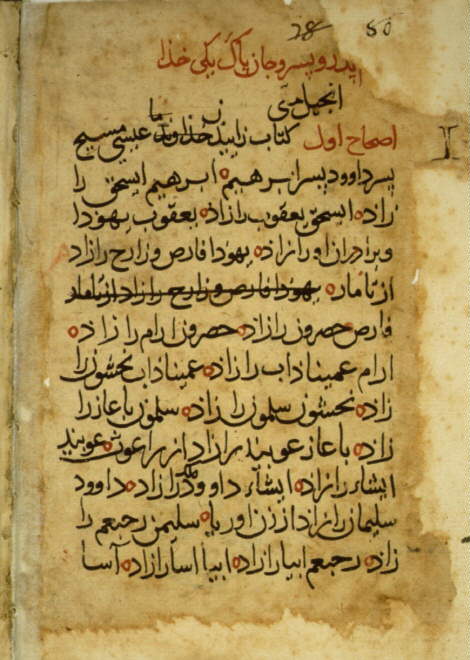 28 50
اپدر و پسر و جان پاک یکی خذا
انجیل متی
اصحاح اول کتاب زاییدن خداوند ما عیسی مسیح
پسر داوود پسر ابرهیم ابرهیم اسحق را
زاده اسحق یعقوب را زاده یعقوب یهودا
و برادران او را زاده یهودا فارص و زارح را زاد
از تامار یهودا فارص و زارح را زاد از تامار
فارص حصرون را زاده حصرون ارام را زاده
ارام عمیناداب را زاده عمیناداب نحشون را
زاده نحشون سلمون را زاده سلمون باعاز را
زاده باعاز عوبید را زاد از راعوث عوبید
ایشاء را زاده ایشاء داوود ملک را زاده داوود
سلیمان را زاد از زن اوریا سلیمن رحبعم را
زاده رحبعم ابیا را زاده ابیا اسا را زاده آسا